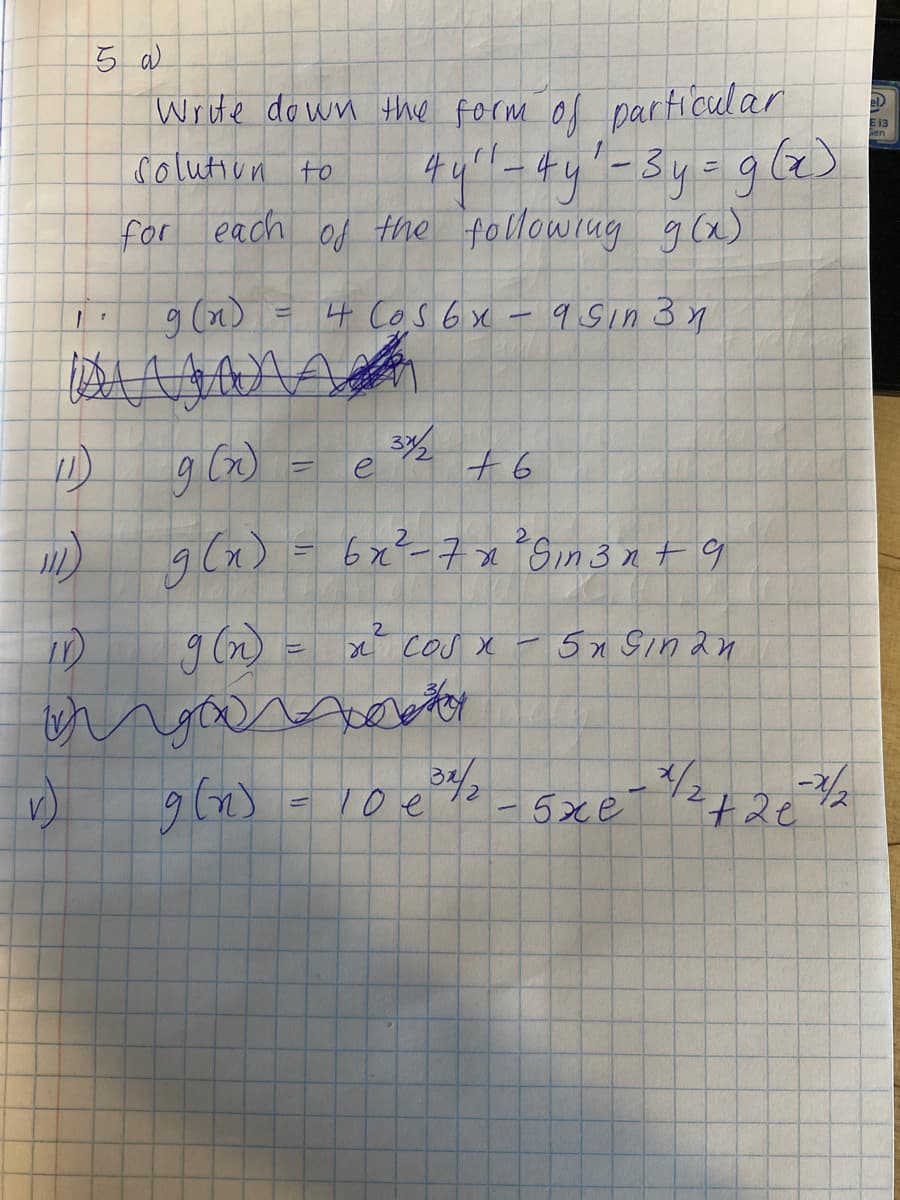 5 a)
Write down the form of particular
solution to 4y'' - 4y' - 3y = g(x)
for each of the following g(x)
i. g(x) = 4 Cos 6x - 9 Sin 3x
ii) g(x) = e^{3x/2} + 6
iii) g(x) = 6x² - 7x² Sin 3x + 9
iv) g(x) = x² cos x - 5x Sin 2x
v) g(x) = 10 e^{3x/2} - 5xe^{-x/2} + 2e^{-x/2}